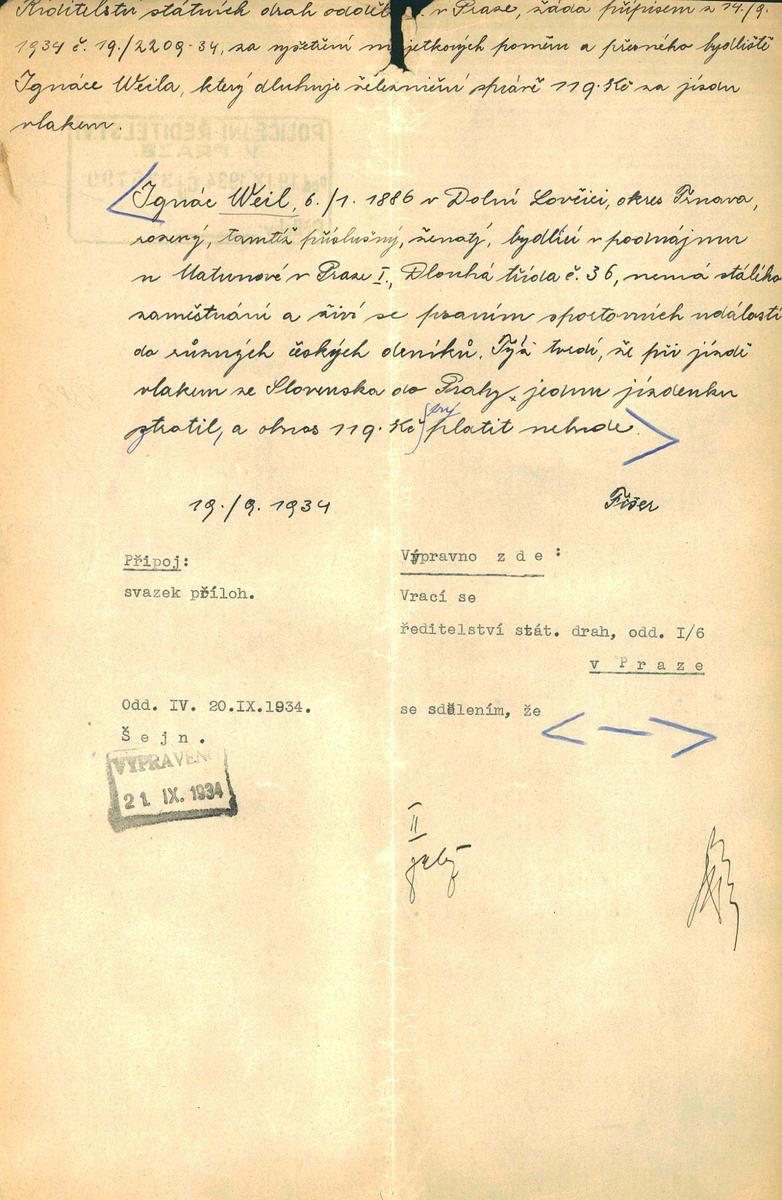 Ředitelství státních drah odděl. v Praze, žádá přípisem z 14./9.
1934 č. 19./2209-34, za vyšetření majetkových poměrů a přesného bydliště
Ignáce Weila, který dluhuje železniční správě 119.Kč za jízdu
vlakem.
Ignác Weil, 6./1. 1886 v Dolní Lovčici, okres Trnava,
rozený, tamtéž příslušný, ženatý, bydlící v podnájmu
u Matunové v Praze I., Dlouhá třída č. 36, nemá stálého
zaměstnání a živí se psaním sportovních událostí
do různých českých deníků. Týž tvrdí, že při jízdě
vlakem ze Slovenska do Prahy jednu jízdenku
ztratil, a obnos 119.Kč prý platit nebude.
19./9. 1934 Fišer
Připoj:
svazek příloh.
Výpravno zde:
Vrací se
ředitelství stát. drah, odd. I/6
v Praze
se sdělením, že
Odd. IV. 20.IX.1934.
Šejn.
VYPRAVENO
21. IX. 1934
II